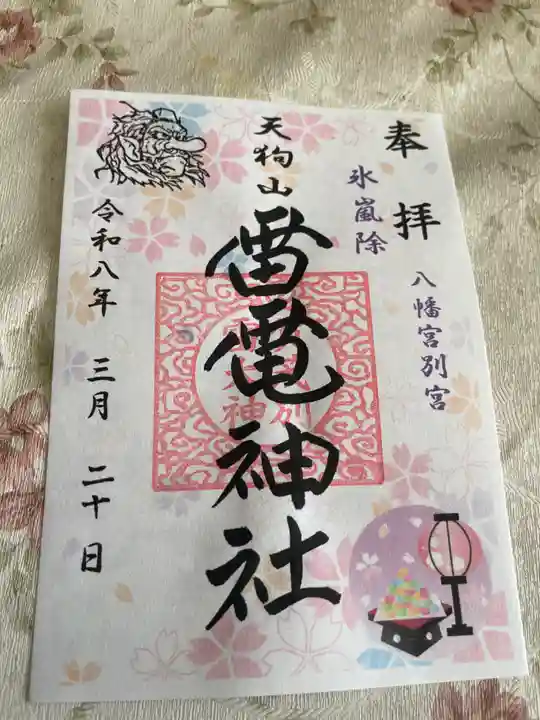 奉拝
八幡宮別宮
氷嵐除
天狗山
雷電神社
令和八年 三月 二十日